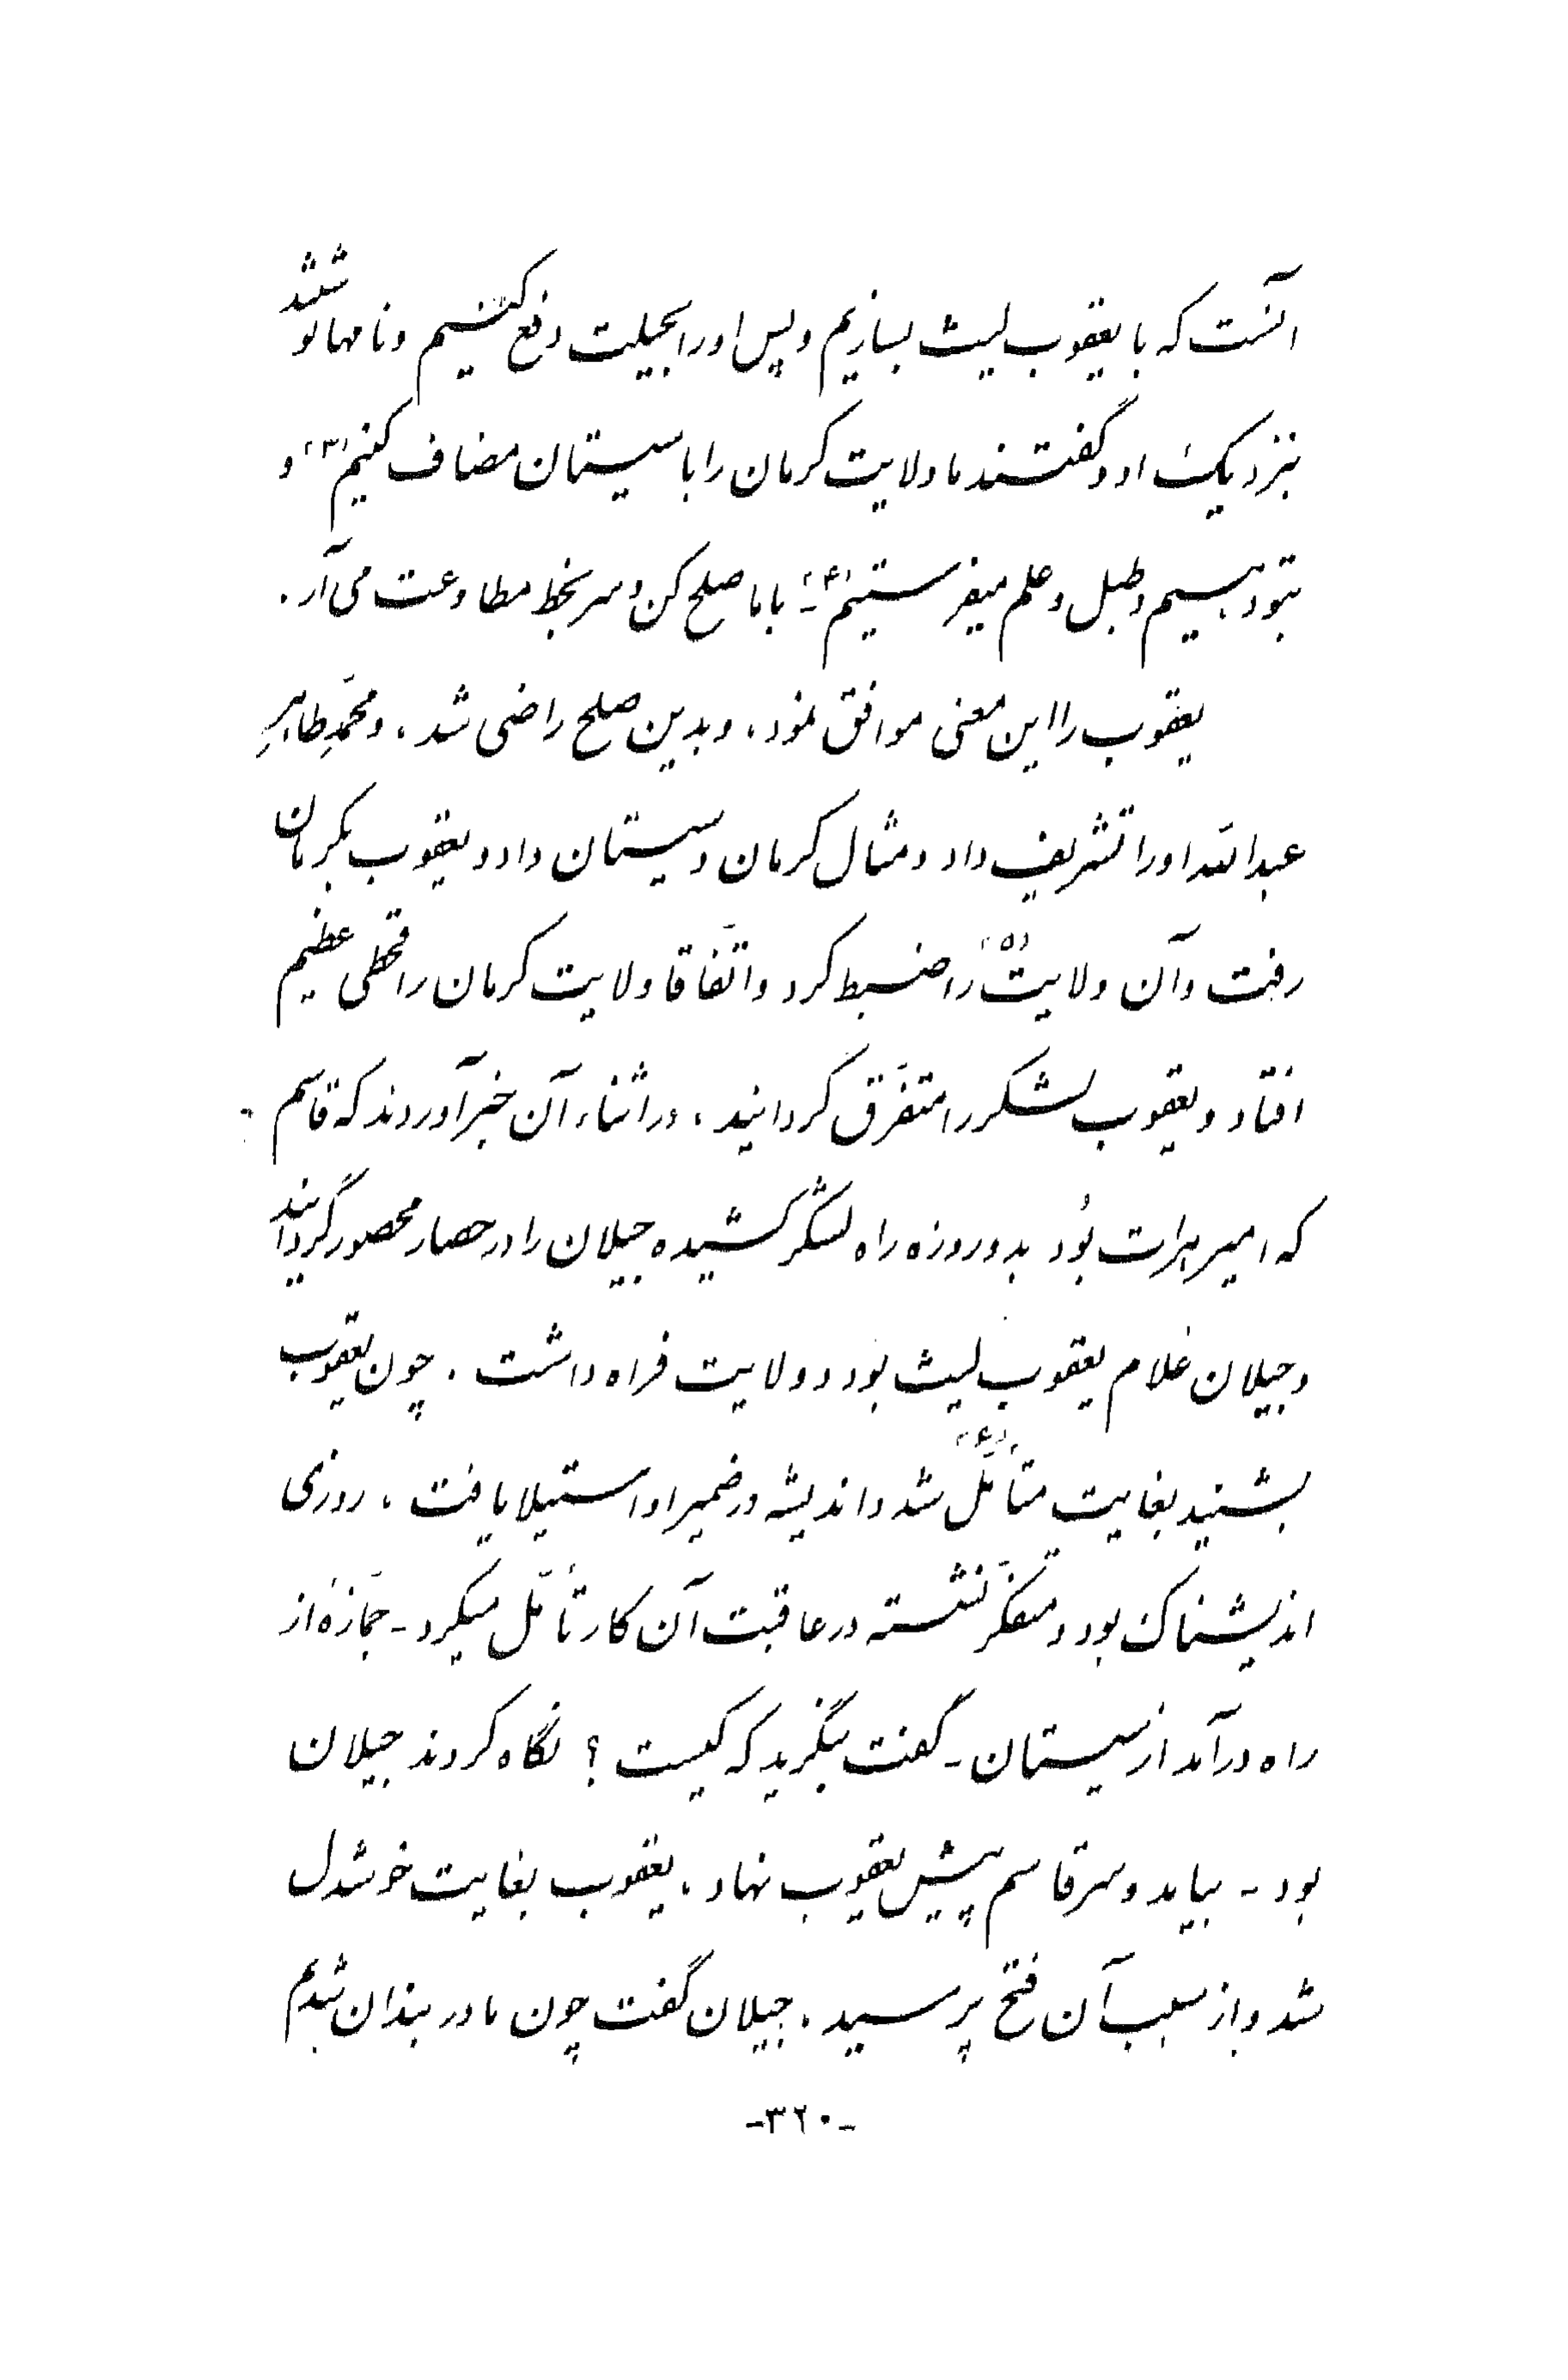 آنست که با یعقوب لیث بسازیم و پس او را بحیلت دفع کنیم و نامها نوشتند
بنزدیک او و گفتند ما ولایت کرمان را با سیستان مضاف کنیم (۳) و
بتو دهیم و طبل و علم میفرستیم (۴) - با ما صلح کن و سر بخط مطاوعت می آر .
یعقوب را این معنی موافق نمود ، و بدین صلح راضی شد ، و محمّدِ طاهرِ
عبدالله او را تشریف داد و مثال کرمان و سیستان داد و یعقوب بکرمان
رفت و آن ولایت (۵) را ضبط کرد و اتّفاقا ولایت کرمان را قحطی عظیم
افتاد و یعقوب لشکر را متفرّق گردانید ، در اثناء آن خبر آوردند که قاسم
که امیر هرات بُود بدو روزه راه لشکر کشیده جیلان را در حصار محصور گردانید
و جیلان غلام یعقوب لیث بود و ولایت فراه داشت . چون یعقوب
بشنید بغایت متأمّل (۶) شد و اندیشه در ضمیر او استیلا یافت ، روزی
اندیشناک بود و متفکّر نشسته در عاقبت آن کار تأمّل میکرد - جمّازهٔ از
راه در آمد از سیستان - گفت بنگرید که کیست ؟ نگاه کردند جیلان
بود - بیامد و سر قاسم پیش یعقوب نهاد ، یعقوب بغایت خوشدل
شد و از سبب آن فتح پرسید . جیلان گفت چون ما در بندان شدیم
-۳۲۰-